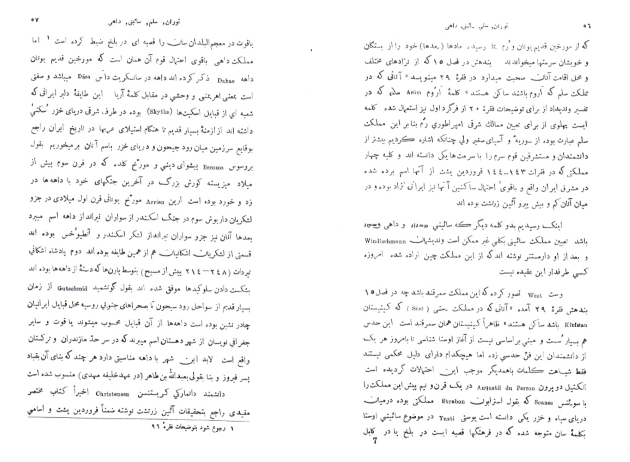 ۵۶
توران, سلم, سائینی, داهی
که از مورخین قدیم یونان و رُم بما رسیده. مادها (بعدها) خود را از بستگان
و خویشان سرمتها میخواندند بندهش در فصل ۱۵ که از نژادهای مختلف
و محل اقامت آنان صحبت میدارد در فقرهٔ ۲۹ مینویسد «آنانی که در
مملکت سلم که اَروم باشند ساکن هستند» کلمهٔ اَروم Arūm در جزو
تفسیر وندیداد از برای توضیحات فقرهٔ ۲۰ از فرگرد اول نیز استعمال شده کلمه
ایست پهلوی از برای تعیین ممالک شرقی امپراطوری رُم بنا بر این مملکت
سلم عبارت بوده از سوریه و آسیای صغیر ولی چنانکه اشاره کردیم بیشتر از
دانشمندان و مستشرقین قوم سرم را با سرمت‌ها یکی دانسته اند و کلیه چهار
مملکتی که در فقرات ۱۴۳—۱۴۴ فروردین یشت از آنها اسم برده شده
در مشرق ایران واقع و باقوی احتمال ساکنین آنها نیز ایرانی نژاد بوده و در
میان آنان کم و بیش پیرو آئین زرتشت بوده اند
اینک رسیدیم بدو کلمه دیگر که سائینی و داهی
باشد تعیین مملکت سائینی بکلی غیر ممکن است وندیشمان Windischmann
و بعد از او دارمستتر نوشته اند که از این مملکت چین اراده شده امروزه
کسی طرفدار این عقیده نیست
وست West تصور کرده که این مملکت سمرقند باشد چه در فصل ۱۵
بندهش فقرهٔ ۲۹ آمده «آنانی که در مملکت سنی (Sīnī) که کینیستان
Kīnīstan باشد ساکن هستند» ظاهراً کینیستان همان سمرقند است این حدس
هم بسیار سُست و مبنی براساسی نیست از آغاز اوستا شناسی تا بامروز هر یک
از دانشمندان این فنّ حدسی زده اما هیچکدام دارای دلیل محکمی نیستند
فقط شباهت کلمات باهمدیگر موجب این احتمالات گردیده است
آنکتیل دوپرون Anquetil du Perron در یک قرن و نیم پیش این مملکت را
با سوئنس Soanes که بقول استرابون Strabon مملکتی بوده درمیان
دریای سیاه و خزر یکی دانسته است یوستی Justi در موضوع سائینی اوستا
بکلمهٔ سان متوجه شده که در فرهنگها قصبه ایست در بلخ یا در کابل
7
توران, سلم, سائینی, داهی
۵۷
یاقوت در معجم‌البلدان سان را قصبه ای در بلخ ضبط کرده است ۱ اما
مملکت داهی باقوی احتمال قوم آن همان است که مورخین قدیم یونان
داهه Dahae ذکر کرده اند داهه در سانسکریت داس Dāsa میباشد و صفتی
است بمعنی اهریمنی و وحشی در مقابل کلمهٔ آریا این طایفهٔ دلیر ایرانی که
شعبه ای از قبایل اسکیت‌ها (Skythe) بوده در طرف شرقی دریای خزر سُکنی
داشته اند از ازمنهٔ بسیار قدیم تا هنگام استیلای عربها در تاریخ ایران راجع
بوقایع سرزمین میان رود جیحون و دریای خزر باسم آنان برمیخوریم بقول
بروسوس Berosus پیشوای دینی و مورّخ کلده که در قرن سوم پیش از
میلاد میزیسته کورش بزرگ در آخرین جنگهای خود با داهه‌ها در
زد و خورد بوده است آرین Arrien مورّخ یونانی قرن اول میلادی در جزو
لشکریان داریوش سوم در جنگ اسکندر از سواران تیرانداز داهه اسم میبرد
بعدها آنان نیز جزو سواران تیرانداز لشکر اسکندر و آنطیوخُس بوده اند
قسمتی از لشکریان اشکانیان هم از همین طایفه بوده اند دوم پادشاه اشکانی
تیردات (۲۴۸—۲۱۴ پیش از مسیح) بتوسط پارن‌ها که دستهٔ از داهه‌ها بوده اند
بشکست دادن سلوکیدها موفق شده اند بقول گوتشمید Gutschmid از زمان
بسیار قدیم از سواحل رود سیحون تا صحراهای جنوبی روسیه محل قبایل ایرانیان
چادر نشین بوده است داهه‌ها از آن قبایل محسوب میشوند یاقوت و سایر
جغرافی نویسان از شهر دهستان اسم میبرند که در سر حدّ مازندران و ترکستان
واقع است لابد این شهر با داهه مناسبتی دارد هر چند که بنای آن بقباد
پسر فیروز و بنا بقولی بعبدالله بن طاهر (در عهد خلیفه مهدی) منسوب شده است
دانشمند دانمارکی کریستنسن Christensen اخیراً کتاب مختصر
مفیدی راجع بتحقیقات آئین زرتشت نوشته ضمناً فروردین یشت و اسامی
۱ رجوع شود بتوضیحات فقرهٔ ۹۶